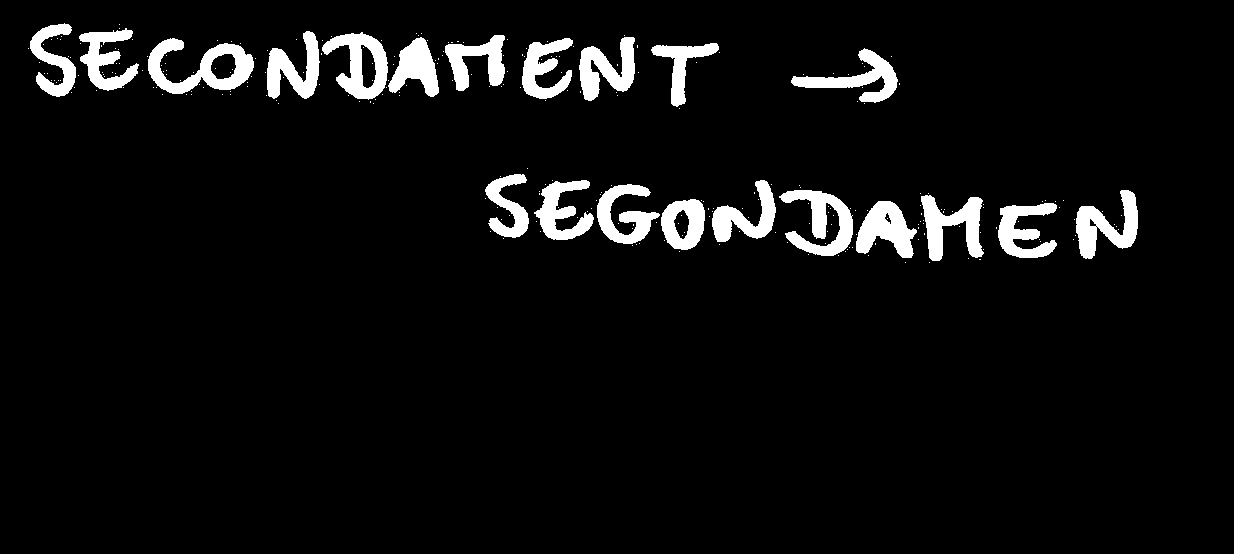 SECONDAMENT →
SEGONDAMEN